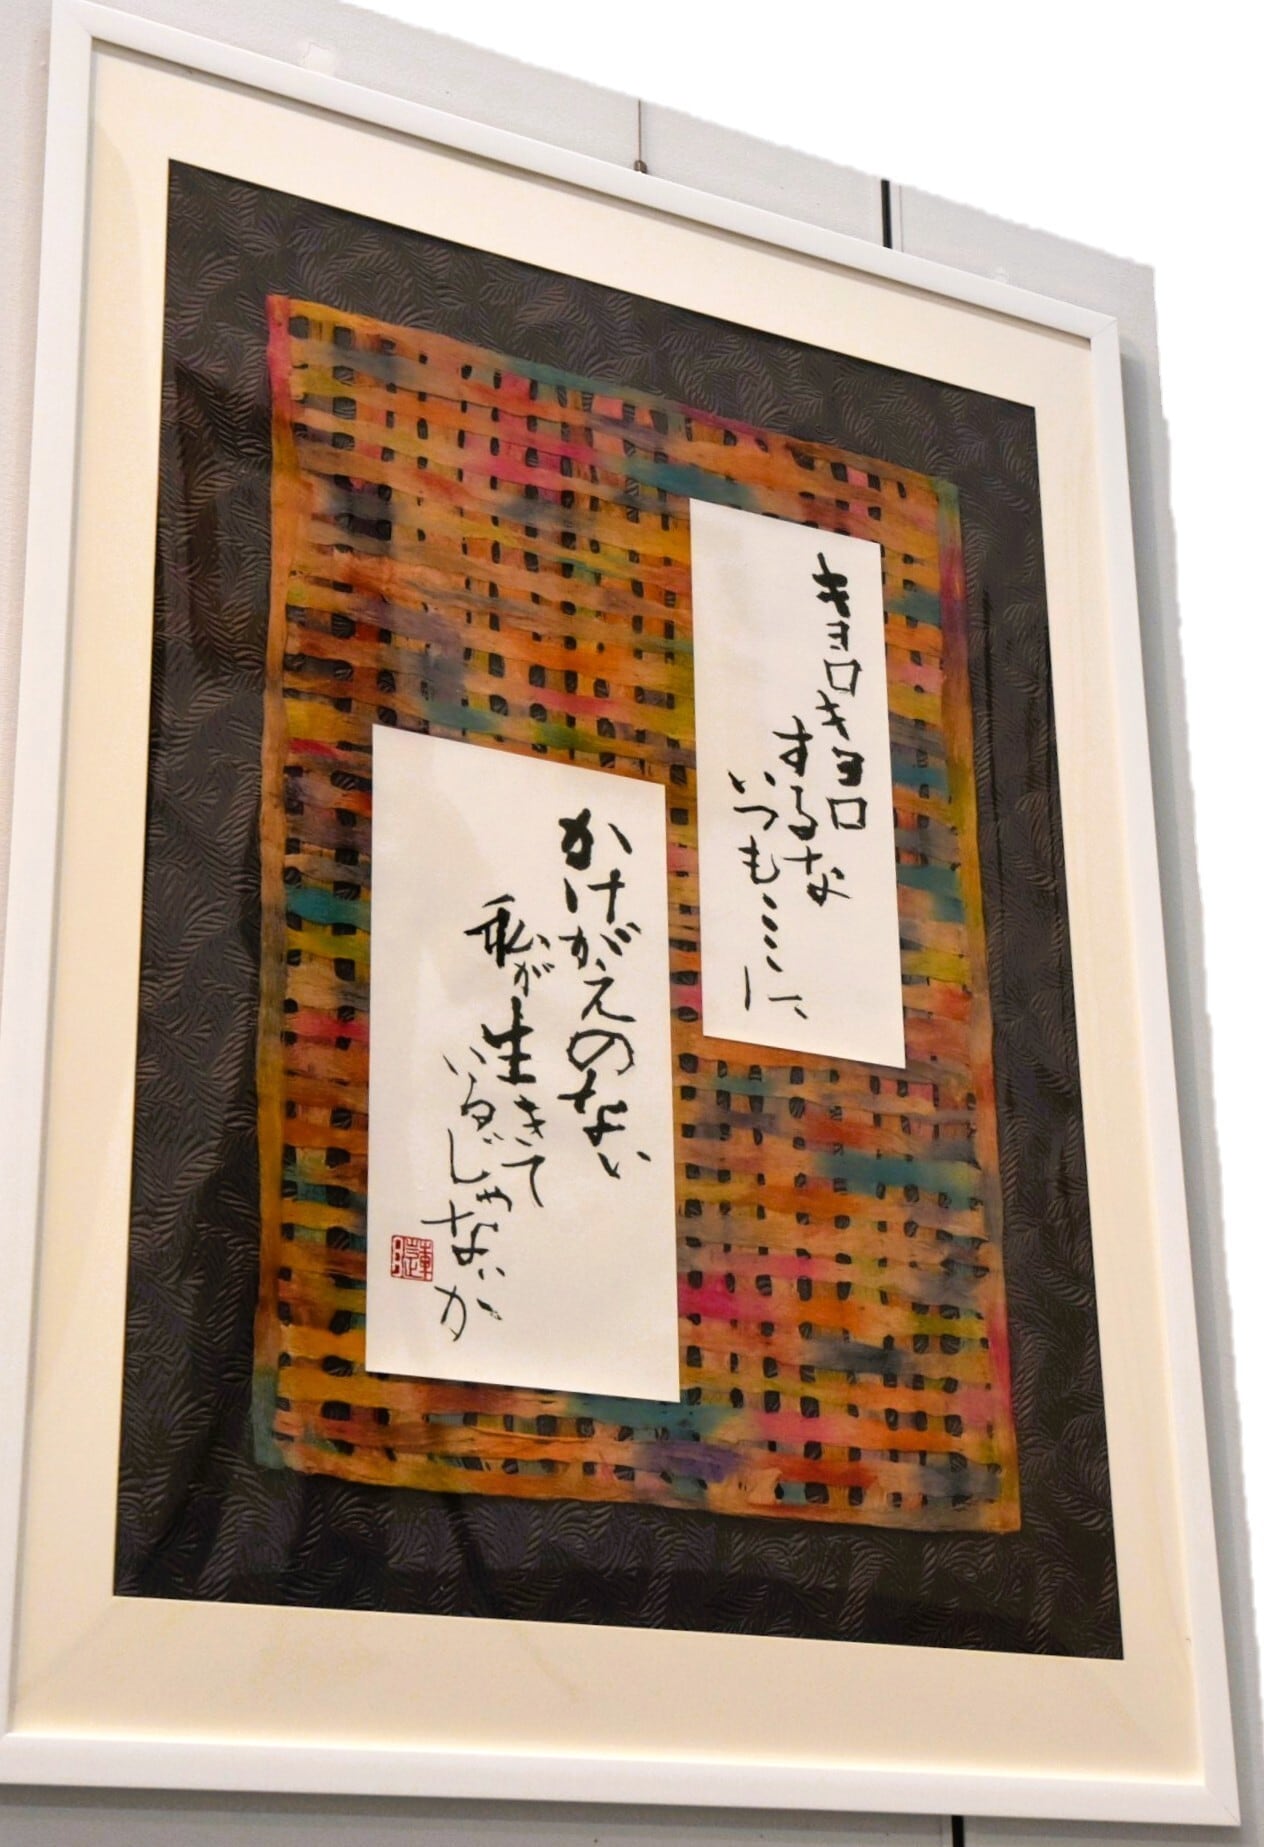 キョロキョロ
するな
いつもここに
かけがえのない
私が生きて
いるじゃないか